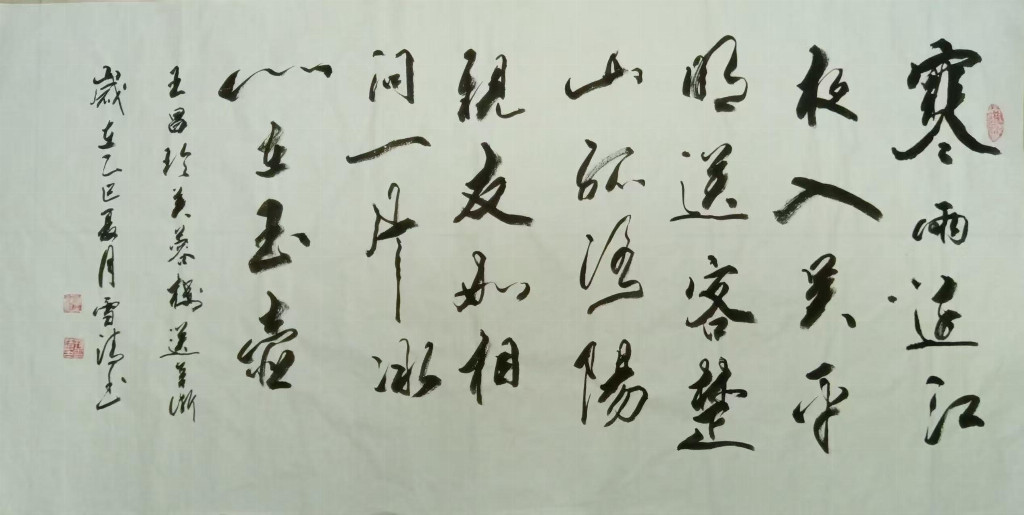 寒雨連江
夜入吴平
明送客楚
山孤洛陽
親友如相
问一片冰
心在玉壺
王昌龄芙蓉楼送辛渐
歲在乙巳夏月雪清书